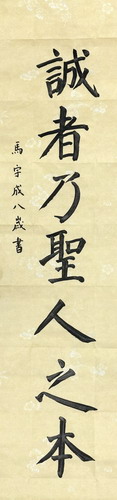 誠者乃聖人之本
馬宇成八歲書